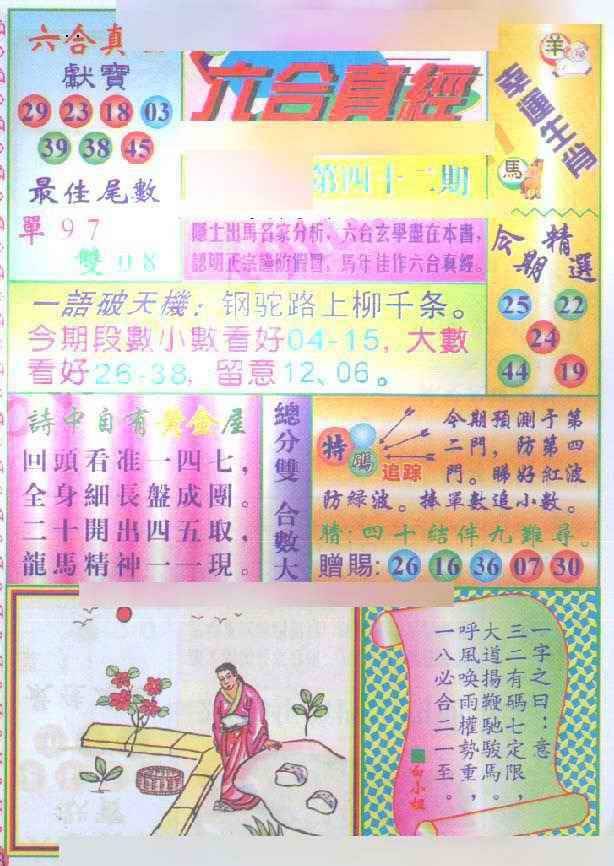 六合真
獻寶
29 23 18 03
39 38 45
最佳尾數
單97
雙08
六合真經
第四十二期
隱士出馬名家分析，六合玄學盡在本書，
認明正宗謹防假冒，馬年佳作六合真經。
羊
幸運生肖
馬
今期
精選
25 22
24
44 19
一語破天機：钢驼路上柳千条。
今期段數小數看好04-15，大數
看好26-38，留意12、06。
詩中自有黃金屋
回頭看准一四七，
全身細長盤成團。
二十開出四五取，
龍馬精神一一現。
總分雙 合數大
特碼
追踪
今期預測予第
二門，防第四
門。睇好紅波
防綠波。捧單數追小數。
猜：四十结伴九難尋。
贈賜：26 16 36 07 30
一字之曰：意
三二有碼七定限，
大道揚鞭馳駿馬。
呼風喚雨權勢重，
一八必合二一至。
白小姐